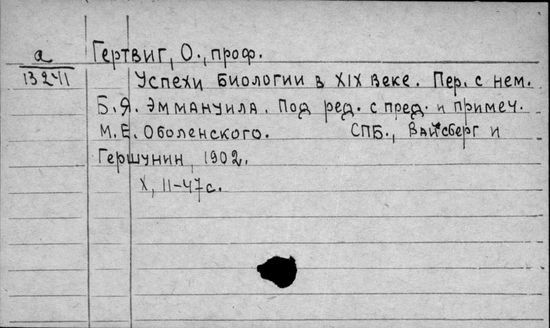 а Гертвиг, О., проф.
13241 Успехи биологии в XIX веке. Пер. с нем.
Б.Я. Эммануила. Под ред. с пред. и примеч.
М.Е. Оболенского. СПБ., Вайсберг и
Гершунин, 1902.
X, 11-47с.